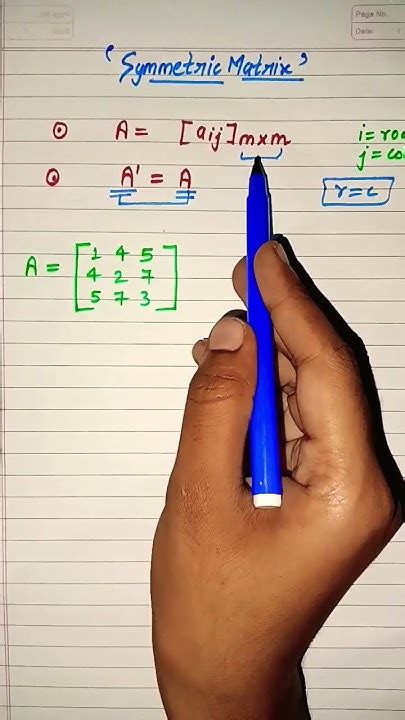 Page No.
Date:
' Symmetric Matrix '
⊙ A = [aij]m×m
i = row
j = co
⊙ A' = A
r = c
A = [1 4 5
4 2 7
5 7 3]